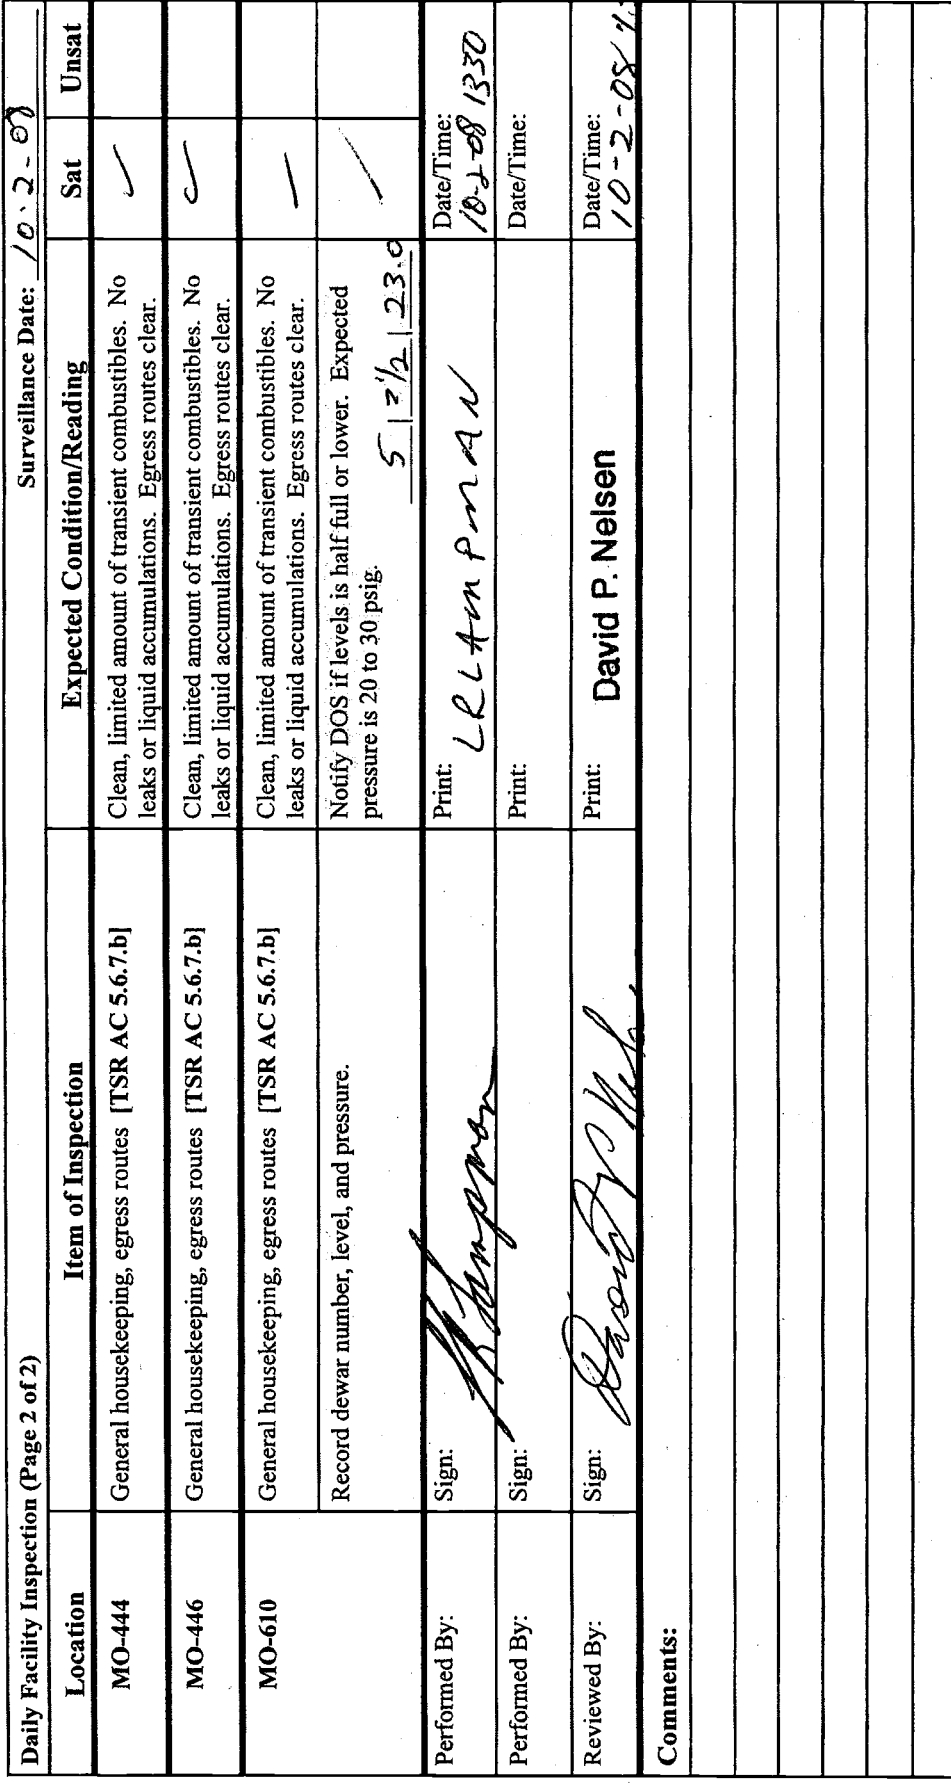 Daily Facility Inspection (Page 2 of 2) Surveillance Date: 10-2-08
Location Item of Inspection Expected Condition/Reading Sat Unsat
MO-444 General housekeeping, egress routes [TSR AC 5.6.7.b] Clean, limited amount of transient combustibles. No
leaks or liquid accumulations. Egress routes clear. ✓
MO-446 General housekeeping, egress routes [TSR AC 5.6.7.b] Clean, limited amount of transient combustibles. No
leaks or liquid accumulations. Egress routes clear. ✓
MO-610 General housekeeping, egress routes [TSR AC 5.6.7.b] Clean, limited amount of transient combustibles. No
leaks or liquid accumulations. Egress routes clear.
Record dewar number, level, and pressure. Notify DOS if levels is half full or lower. Expected
pressure is 20 to 30 psig. 5 | | 23.0
Performed By: Sign: Print: LR LAmPmAN Date/Time:
10-2-08 1330
Performed By: Sign: Print: Date/Time:
Reviewed By: Sign: Print: David P. Nelsen Date/Time:
10-2-08
Comments: